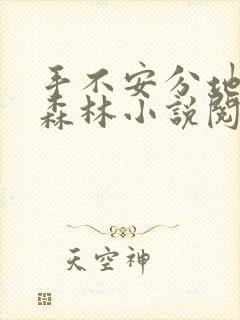 手不安分地
森林小說閱
天空神